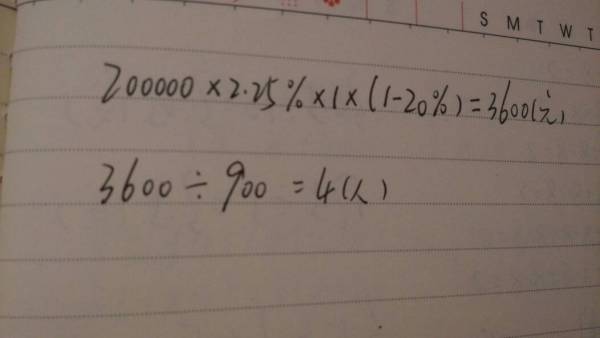 S M T W T
200000×2.25%×1×(1-20%)=3600(元)
3600÷900=4(人)